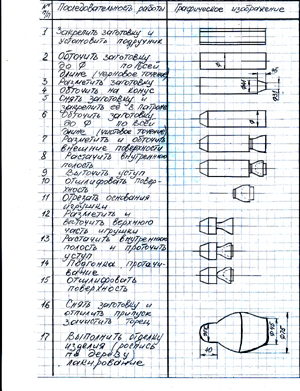 № п/п
Последовательность работы
Графическое изображение
1 Закрепить заготовку и
установить подручник
2 Обточить заготовку
до Ф по всей
длине (черновое точение)
3 Разметить заготовку
4 Обточить на конус
5 Снять заготовку и
закрепить её в патроне
6 Обточить заготовку
до Ф по всей
длине (чистовое точение)
7 Разметить и обточить
внешние поверхности
8 Расточить внутреннюю
полость
9 Выточить уступ
10 Отшлифовать повер-
хность
11 Отрезать основания
игрушки
12 Разметить и
выточить верхнюю
часть игрушки
13 Расточить внутреннюю
полость и проточить
уступ
14 Подгонка, протачи-
вание
15 Отшлифовать
поверхность
16 Снять заготовку и
отпилить припуск
зачистить торец
17 Выполнить отделку
изделия (роспись
по дереву)
лакирование